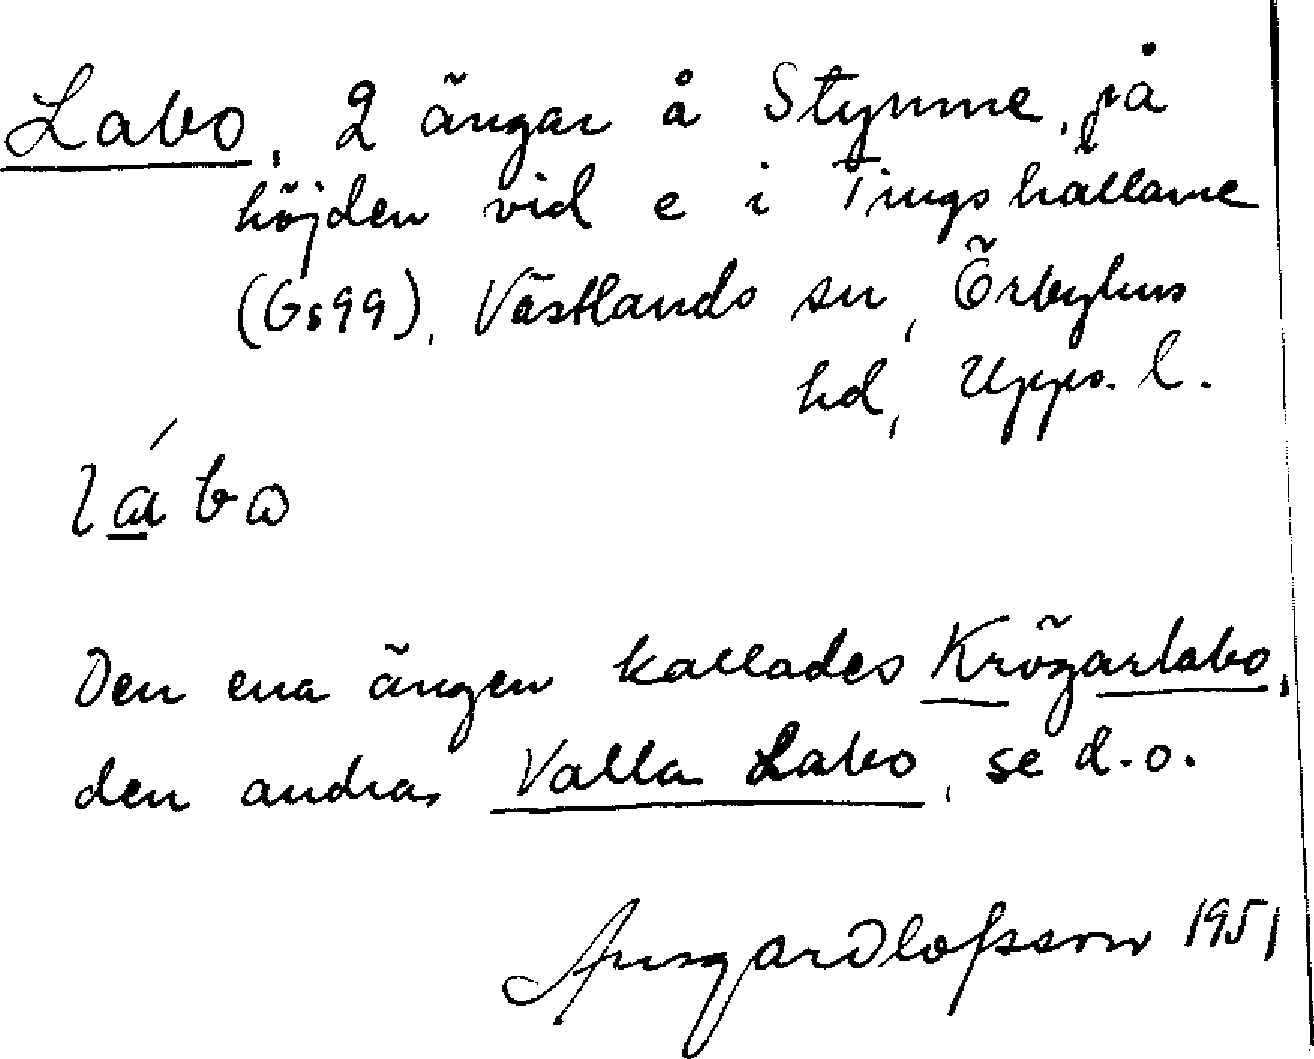 Labo, 2 ängar å Stymne, på
höjden vid e i Tingshällarne
(Gs99), Västlands sn, Örbyhus
hd, Upps. l.
lábo
Den ena ängen kallades Krögarlabo,
den andra, Valla Labo, se d.o.
Ansgar Olofsson 1951